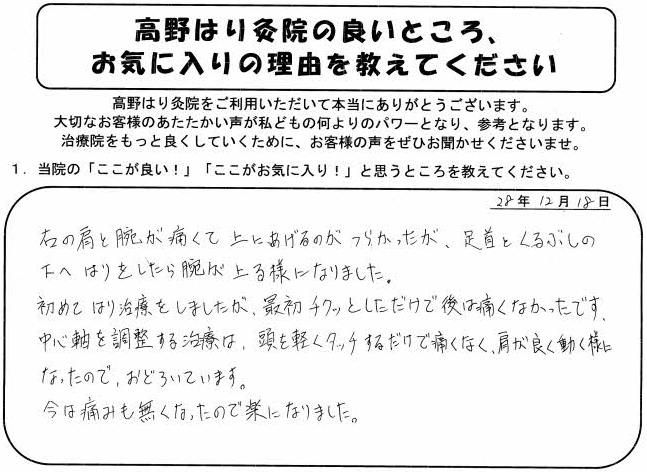 高野はり灸院の良いところ、
お気に入りの理由を教えてください
高野はり灸院をご利用いただいて本当にありがとうございます。
大切なお客様のあたたかい声が私どもの何よりのパワーとなり、参考となります。
治療院をもっと良くしていくために、お客様の声をぜひお聞かせくださいませ。
1．当院の「ここが良い！」「ここがお気に入り！」と思うところを教えてください。
28年12月18日
右の肩と腕が痛くて上にあげるのがつらかったが、足首とくるぶしの
下へはりをしたら腕が上る様になりました。
初めてはり治療をしましたが、最初チクッとしただけで後は痛くなかったです。
中心軸を調整する治療は、頭を軽くタッチするだけで痛くなく、肩が良く動く様に
なったので、おどろいています。
今は痛みも無くなったので楽になりました。